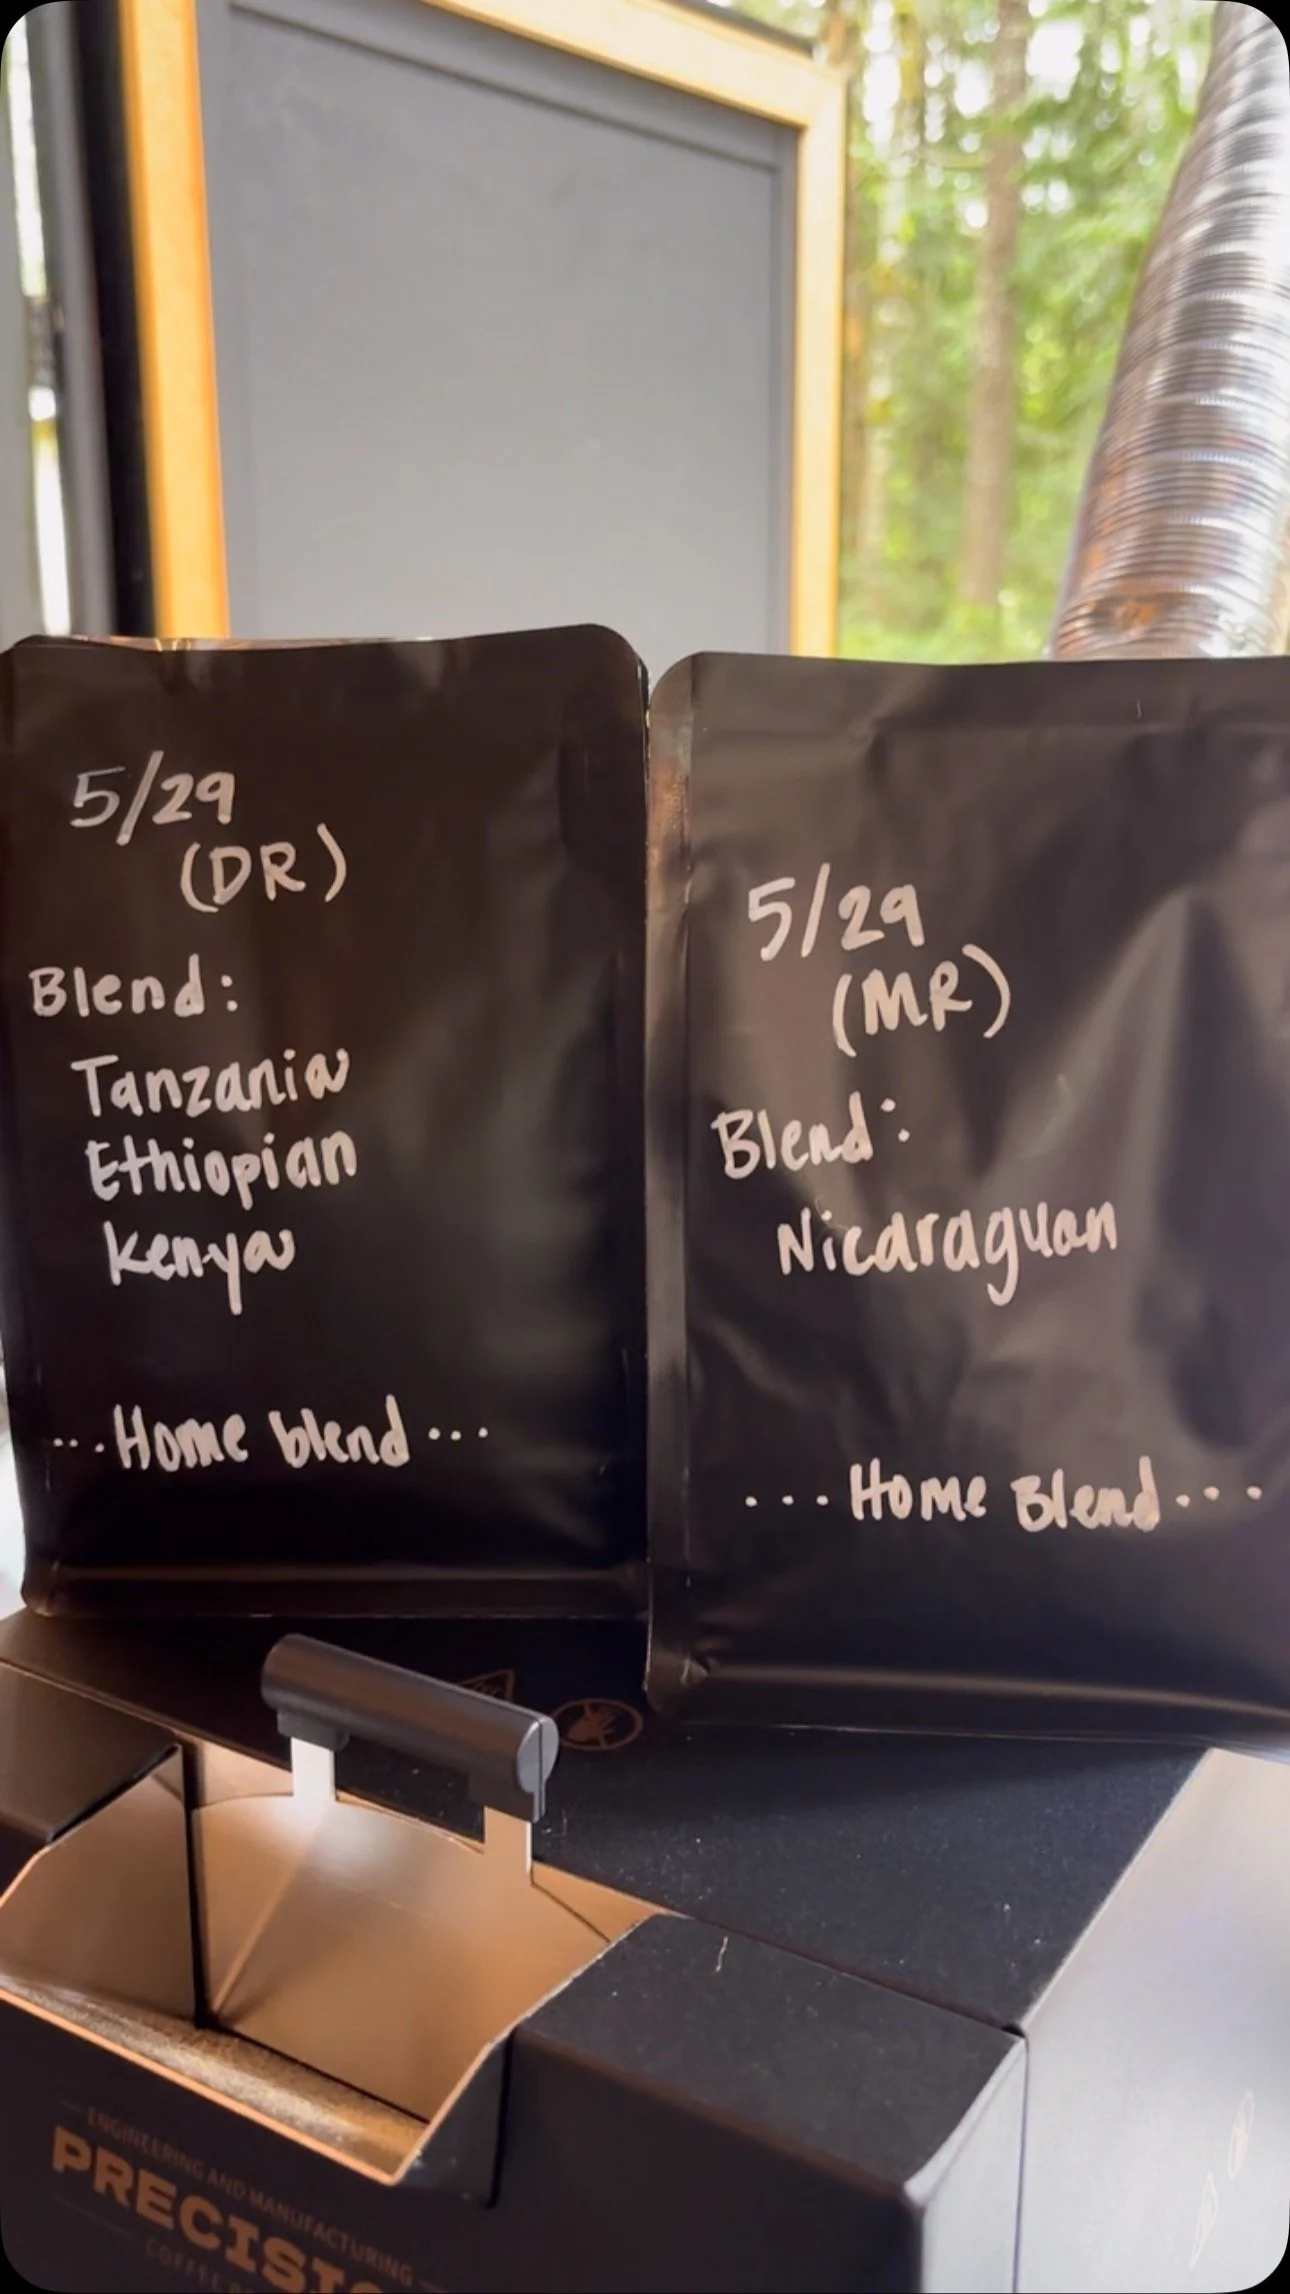 5/29
(DR)
Blend:
Tanzania
Ethiopian
Kenya
...Home blend...
5/29
(MR)
Blend:
Nicaraguan
...Home Blend...
ENGINEERING AND MANUFACTURING
COFFEE